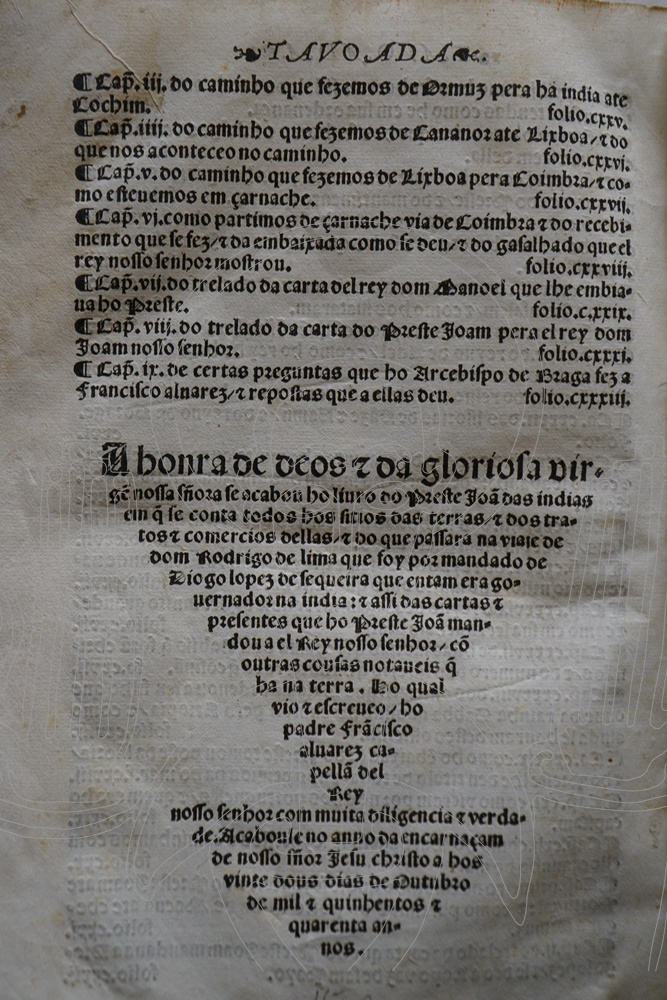 TAVOADA.
¶ Cap̃. iij. do caminho que fezemos de Ormuz pera ha india ate
Cochim. folio.cxxv.
¶ Cap̃. iiij. do caminho que fezemos de Cananor ate Lixboa/ ⁊ do
que nos aconteceo no caminho. folio.cxxvi.
¶ Cap̃. v. do caminho que fezemos de Lixboa pera Coimbra/ ⁊ co-
mo esteuemos em çarnache. folio.cxxvij.
¶ Cap̃. vj. como partimos de çarnache via de Coimbra ⁊ do recebi-
mento que se fez/ ⁊ da embaixada como se deu/ ⁊ do gasalhado que el
rey nosso senhor mostrou. folio.cxxviij.
¶ Cap̃. vij. do trelado da carta del rey dom Manoel que lhe embia-
ua ho Preste. folio.c.xxix.
¶ Cap̃. viij. do trelado da carta do Preste Joam pera el rey dom
Joam nosso senhor. folio.cxxxi.
¶ Cap̃. ix. de certas preguntas que ho Arcebispo de Braga fez a
Francisco aluarez/ ⁊ repostas que a ellas deu. folio.cxxxiij.
A honra de deos ⁊ da gloriosa vir-
gẽ nossa sñora se acabou ho liuro do Preste Joã das indias
em q̃ se conta todos hos sitios das terras/ ⁊ dos tra-
tos ⁊ comercios dellas/ ⁊ do que passara na viaje de
dom Rodrigo de lima que foy por mandado de
Diogo lopez de sequeira que entam era go-
uernador na india: ⁊ assi das cartas ⁊
presentes que ho Preste Joã man-
dou a el Rey nosso senhor/ cõ
outras cousas notaueis q̃
ha na terra. Ho qual
vio ⁊ escreueo/ ho
padre frãcisco
aluarez ca-
pellã del
Rey
nosso senhor com muita diligencia ⁊ verda-
de. Acabouse no anno da encarnaçam
de nosso sñor Jesu christo a hos
vinte dous dias de Outubro
de mil ⁊ quinhentos ⁊
quarenta an-
nos.